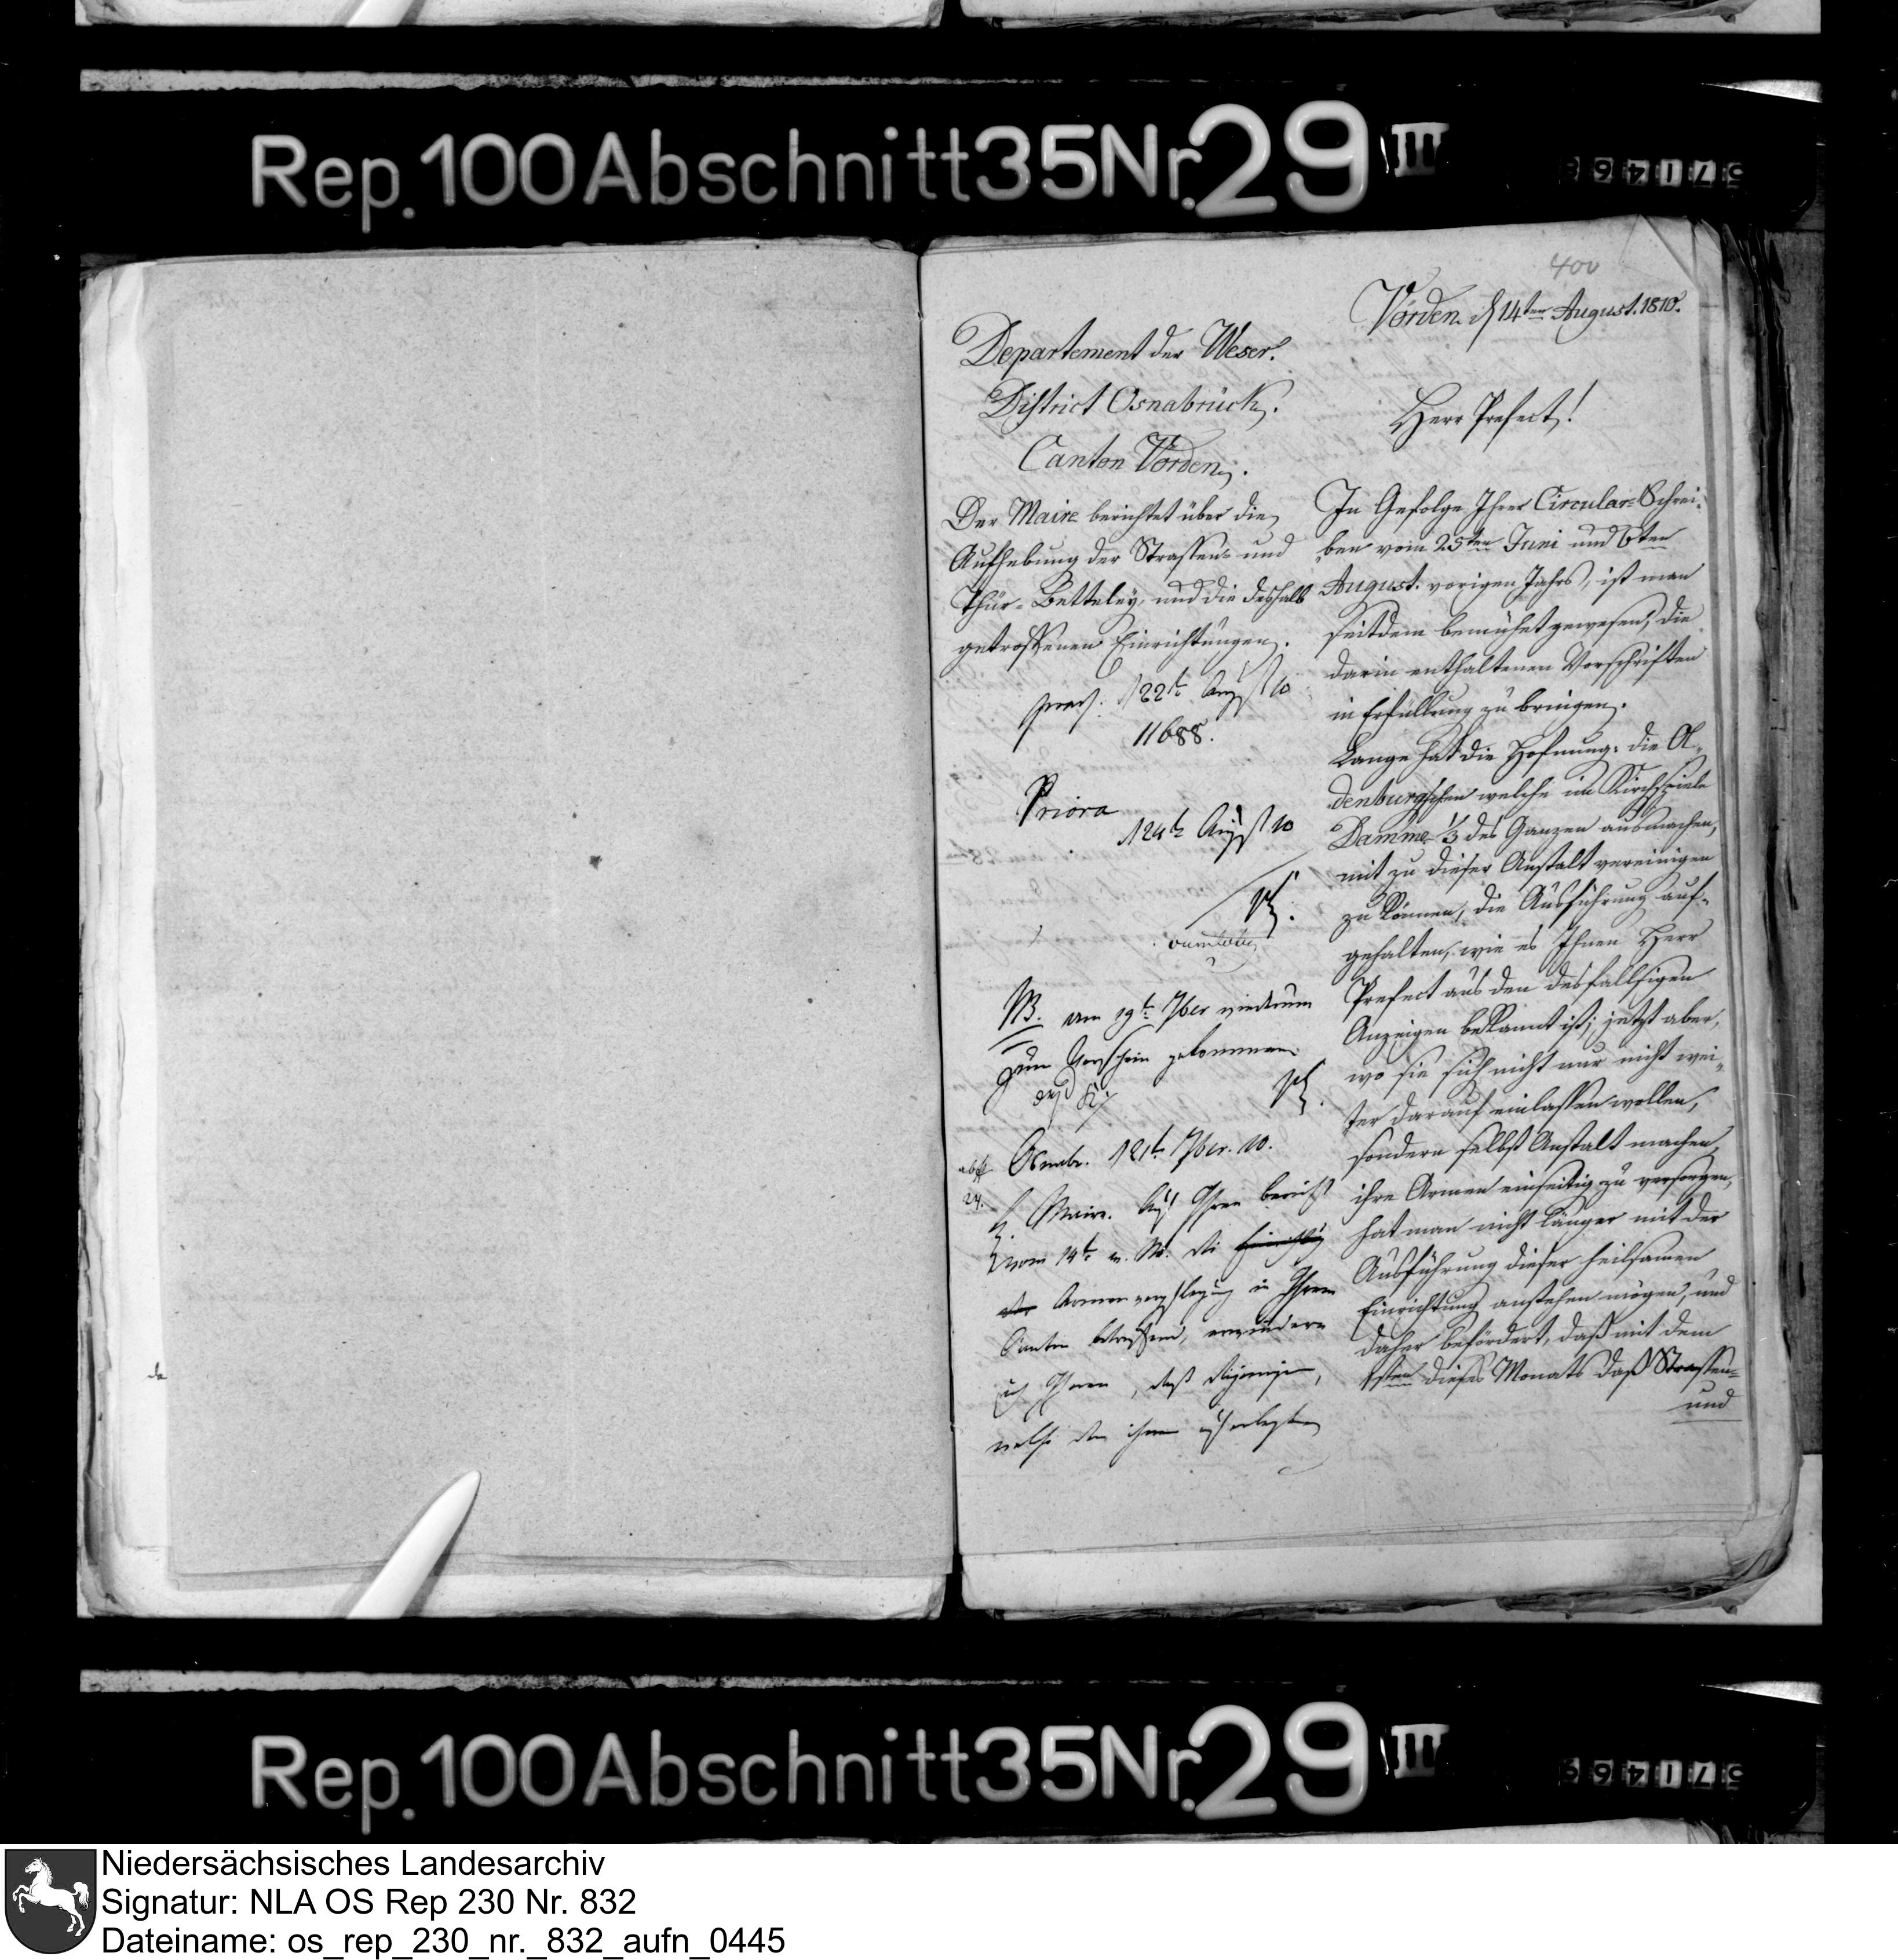 Rep. 100 Abschnitt 35 Nr. 29 III
400
Vörden d 14ten August. 1810.
Departement der Weser.
District Osnabrück.
Canton Vörden.
Der Maire berichtet über die
Aufhebung der Strassen- und
Thür-Betteley, und die deshalb
getroffenen Einrichtungen.
Herr Prefect!
In Gefolge Ihrer Circular-Schrei-
ben vom 25ten Juni und 6ten
August. vorigen Jahrs, ist man
seitdem bemühet gewesen, die
darin enthaltenen Vorschriften
in Erfüllung zu bringen.
Lange hat die Hofnung: die Ol-
denburgschen welche im Kirchspiele
Damme 1/3 des Ganzen ausmachen,
mit zu dieser Anstalt vereinigen
zu können, die Ausführung auf-
gehalten, wie es Ihnen Herr
Prefect aus den desfallsigen
Anzeigen bekannt ist; jetzt aber,
wo sie sich nicht nur nicht wei-
ter darauf einlassen wollen,
sondern selbst Anstalt machen,
ihre Armen einseitig zu versorgen,
hat man nicht länger mit der
Ausführung dieser heilsamen
Einrichtung anstehen mögen, und
daher befördert, daß mit dem
1sten dieses Monats daß Strassen-
und
praes. d 22t August 10
11688.
Priora
d 24t August 10
NB. am 19t 7ber wiederum
zum Vorschein gekommen.
Osnabr. d 21t 7ber. 10.
24.
H. Maire. Auf Ihren Bericht
vom 14t v. M. die
Armenverpflegung in Ihrem
Canton betreffend, erwiedere
ich Ihnen, daß diejenigen,
welche den ihnen auferlegten
da
Rep. 100 Abschnitt 35 Nr. 29 III
Niedersächsisches Landesarchiv
Signatur: NLA OS Rep 230 Nr. 832
Dateiname: os_rep_230_nr._832_aufn_0445